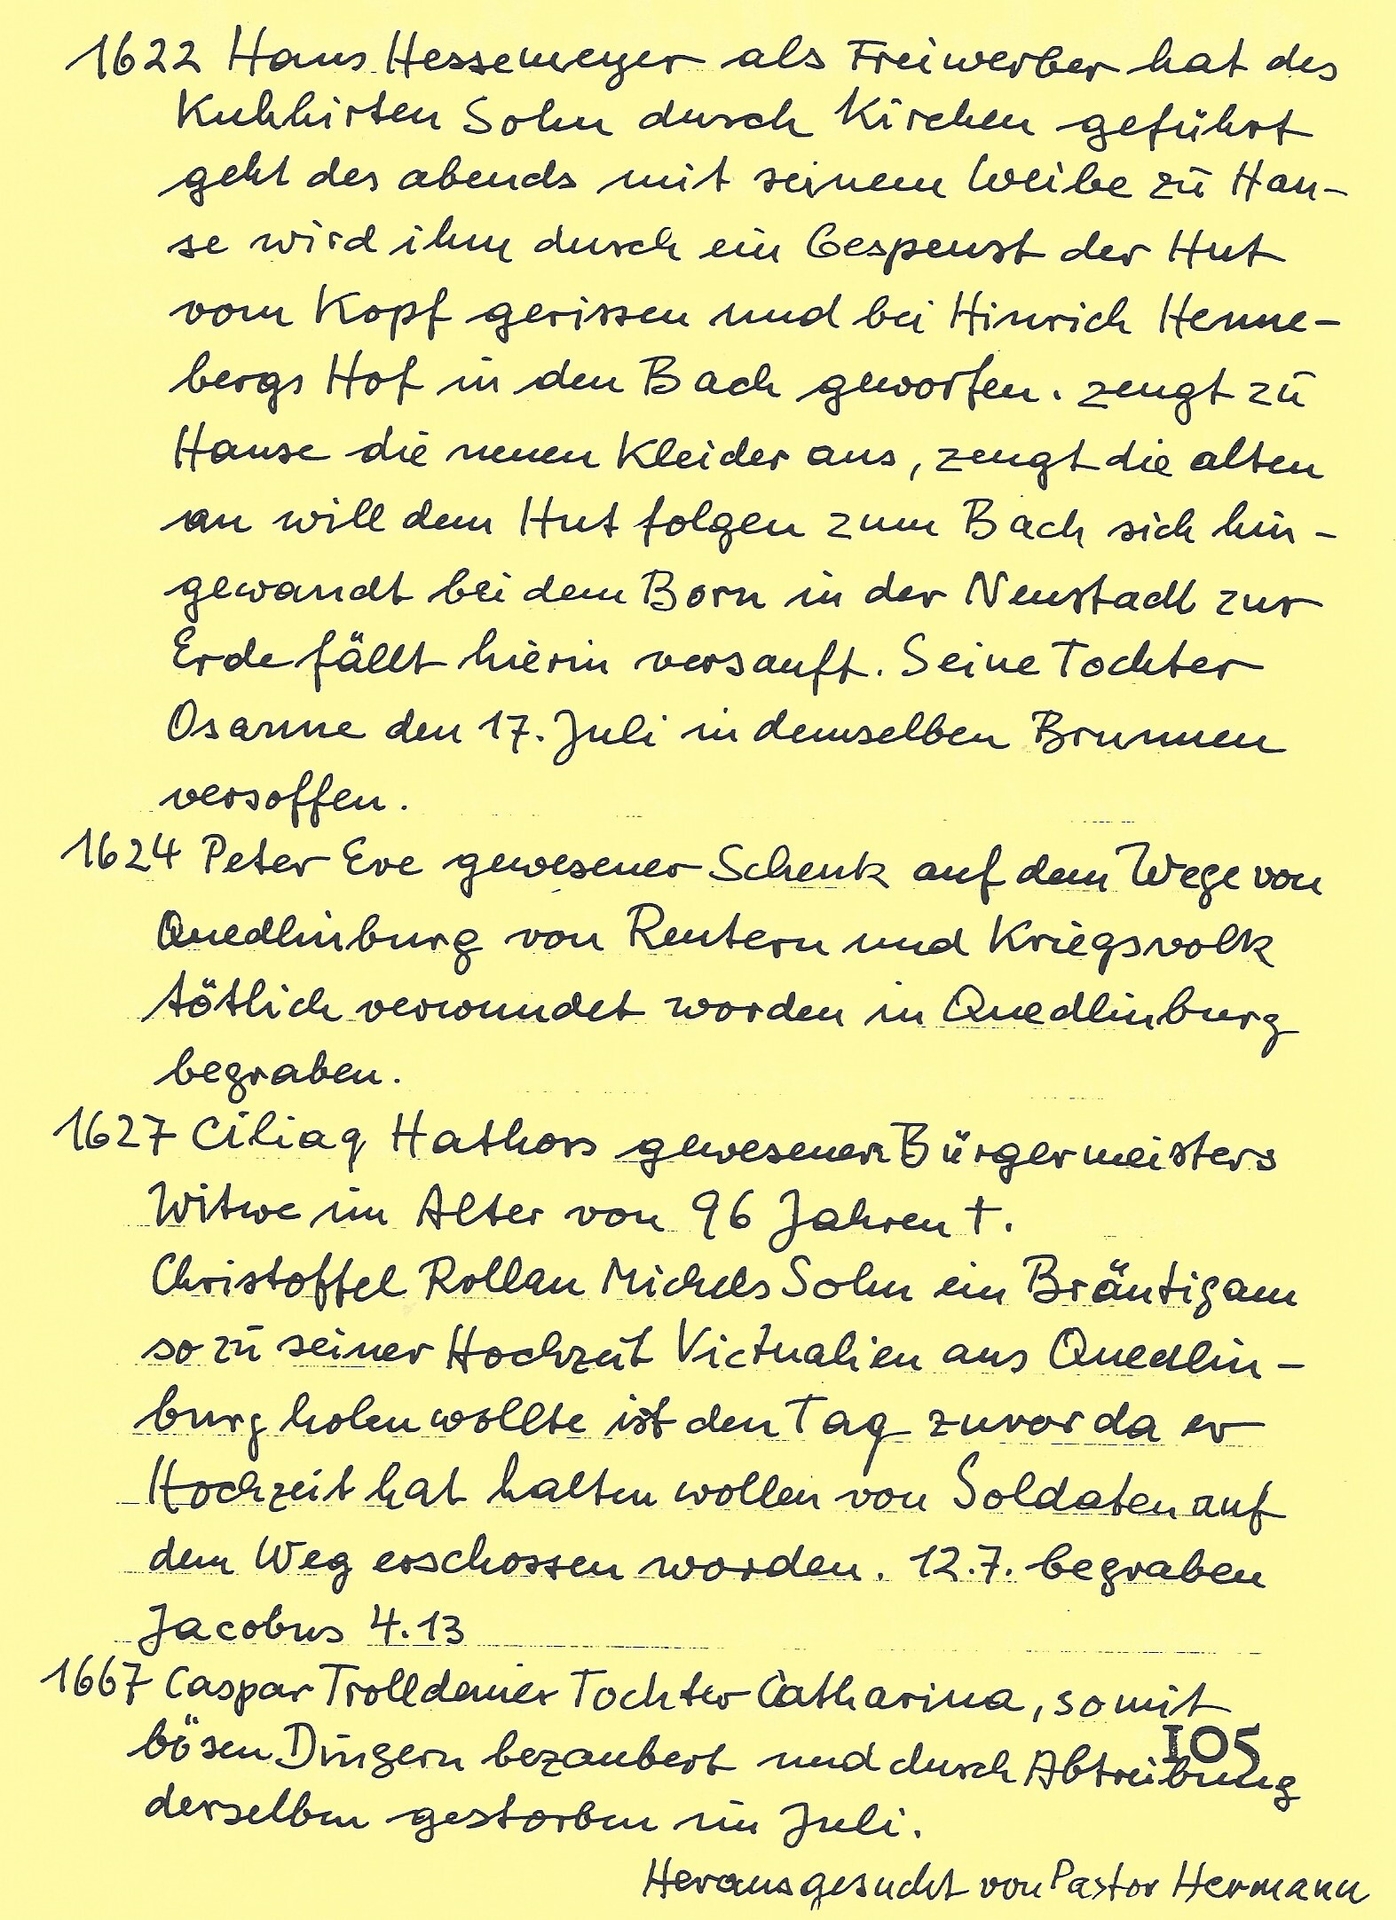 1622 Hans Hessemeyer als Freiwerber hat des
Kuhhirten Sohn dusch Kirchen geführt
geht des abends mit seinem Weibe zu Hau-
se wird ihm dusch ein Gespenst der Hut
vom Kopf gerissen und bei Hinrich Henne-
bergs Hof in den Bach geworfen. zeugt zu
Hause die neuen Kleider aus, zeugt die alten
an will dem Hut folgen zum Bach sich hin-
gewandt bei dem Born in der Neustadt zur
Erde fällt hierin versauft. Seine Tochter
Osanne den 17. Juli in demselben Brunnen
versoffen.
1624 Peter Eve gewesener Schenk auf dem Wege von
Quedlinburg von Reutern und Kriegsvolk
tötlich verwundet worden in Quedlinburg
begraben.
1627 Ciliaq Hathors gewesenen Bürgermeisters
Witwe im Alter von 96 Jahren †.
Christoffel Rollau Michels Sohn ein Bräutigam
so zu seiner Hochzeit Victualien aus Quedlin-
burg holen wollte ist den Tag zuvor da er
Hochzeit hat halten wollen von Soldaten auf
dem Weg erschossen worden. 12.7. begraben
Jacobus 4.13
1667 Caspar Trolldenier Tochter Catharina, so mit
bösen Dingern bezaubert und dursch Abtreibung
105
derselben gestorben im Juli.
Herausgesucht von Pastor Hermann